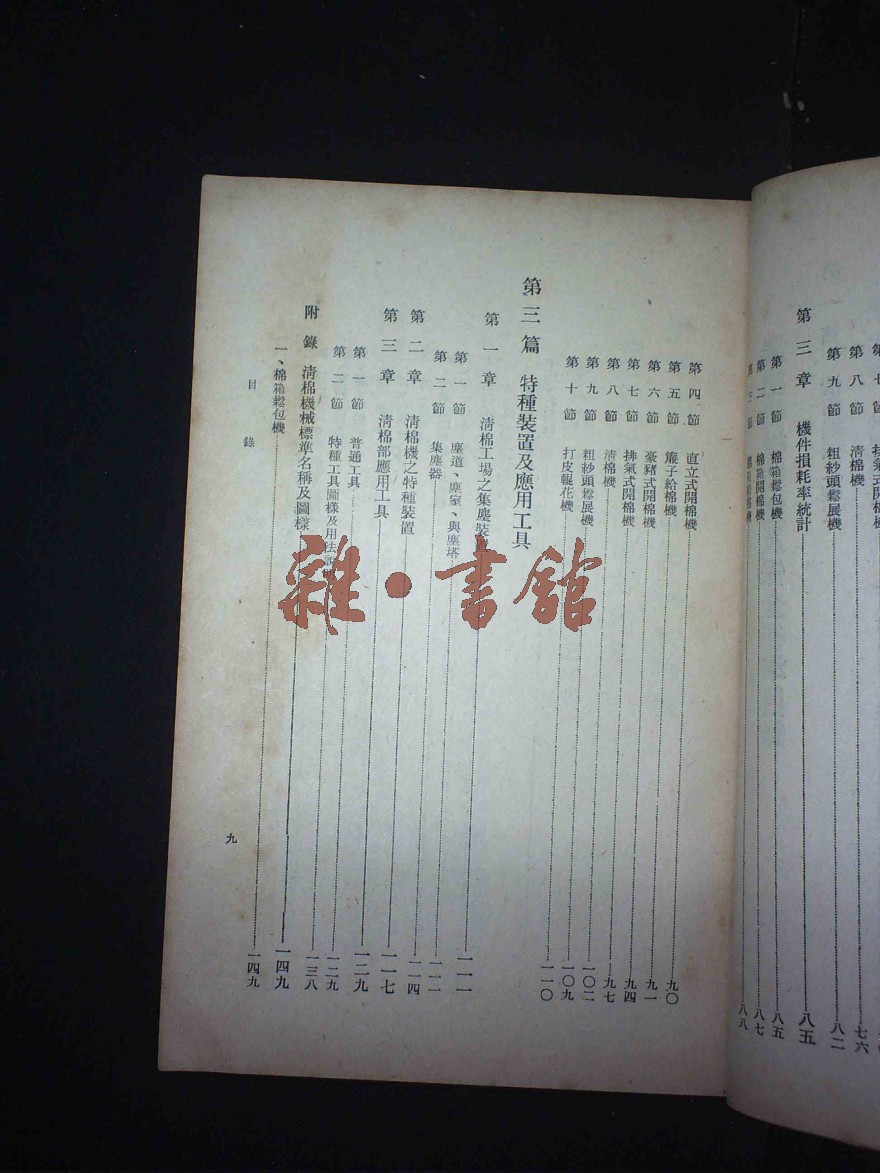 第七節 排氣式開棉機
第八節 清棉機 七六
第九節 粗紗頭鬆展機 八二
第三章 機件損耗率統計 八五
第一節 棉箱鬆包機 八五
第二節 棉箱開棉機 八七
第三節 棉箱給棉機 八八
第四節 直立式開棉機 九〇
第五節 簾子給棉機 九一
第六節 豪豬式開棉機 九四
第七節 排氣式開棉機 九七
第八節 清棉機 一〇二
第九節 粗紗頭鬆展機 一〇九
第十節 打皮輥花機 一一〇
第三篇 特種裝置及應用工具
第一章 清棉工場之集塵裝置 一一一
第一節 塵道、塵室、與塵塔 一一一
第二節 集塵器 一一四
第二章 清棉機之特種裝置 一一七
第三章 清棉部應用工具 一二九
第一節 普通工具 一二九
第二節 特種工具圖樣及用法說明 一三八
附錄 清棉機械標準名稱及圖樣 一四九
一、棉箱鬆包機 一四九
目錄
九
雜·書館